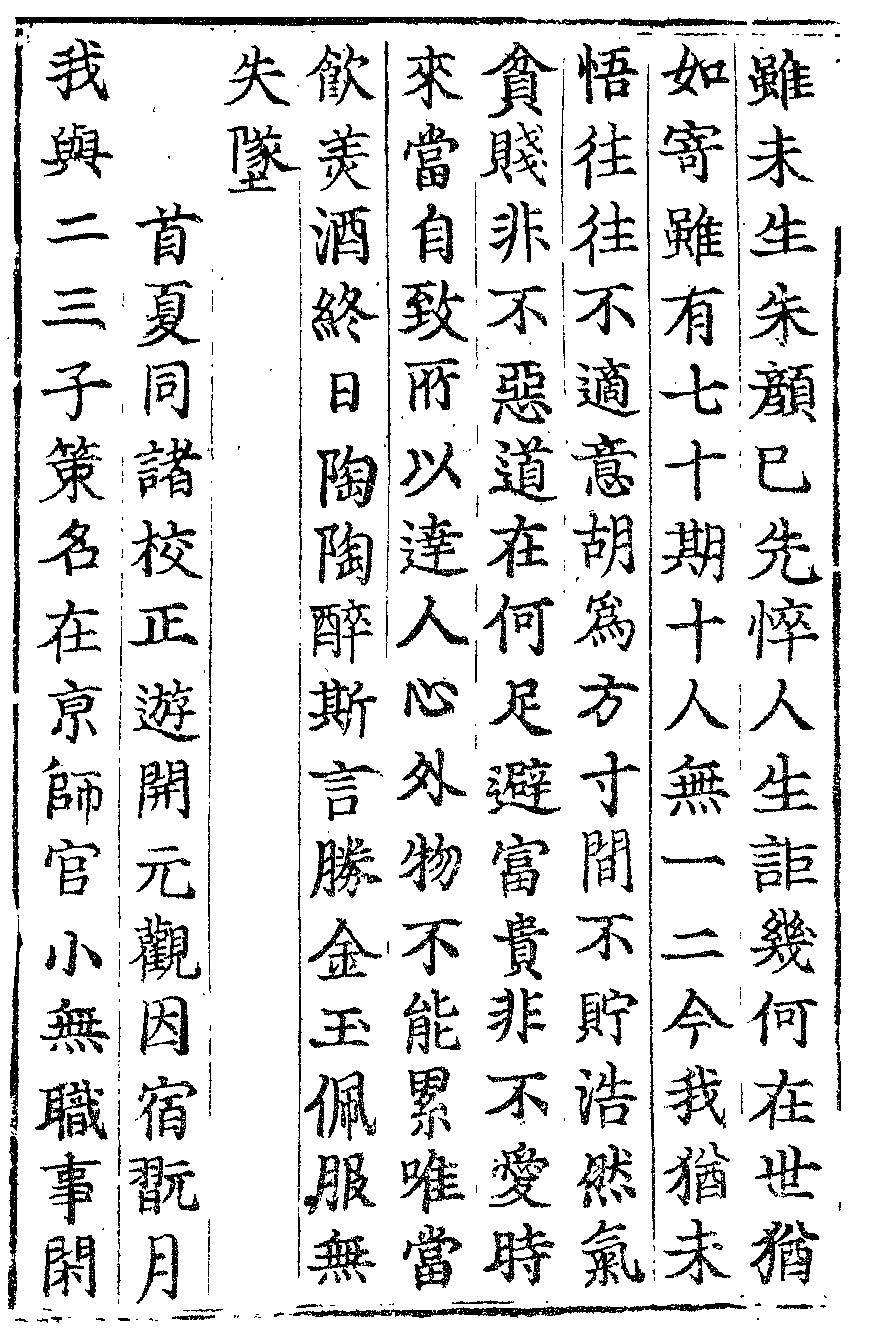 雖未生朱顔已先悴人生詎幾何在世猶
如寄雖有七十期十人無一二今我猶未
悟往往不適意胡爲方寸間不貯浩然氣
貧賤非不惡道在何足避富貴非不愛時
來當自致所以達人心外物不能累唯當
飲美酒終日陶陶醉斯言勝金玉佩服無
失墜
首夏同諸校正遊開元觀因宿翫月
我與二三子策名在京師官小無職事閑